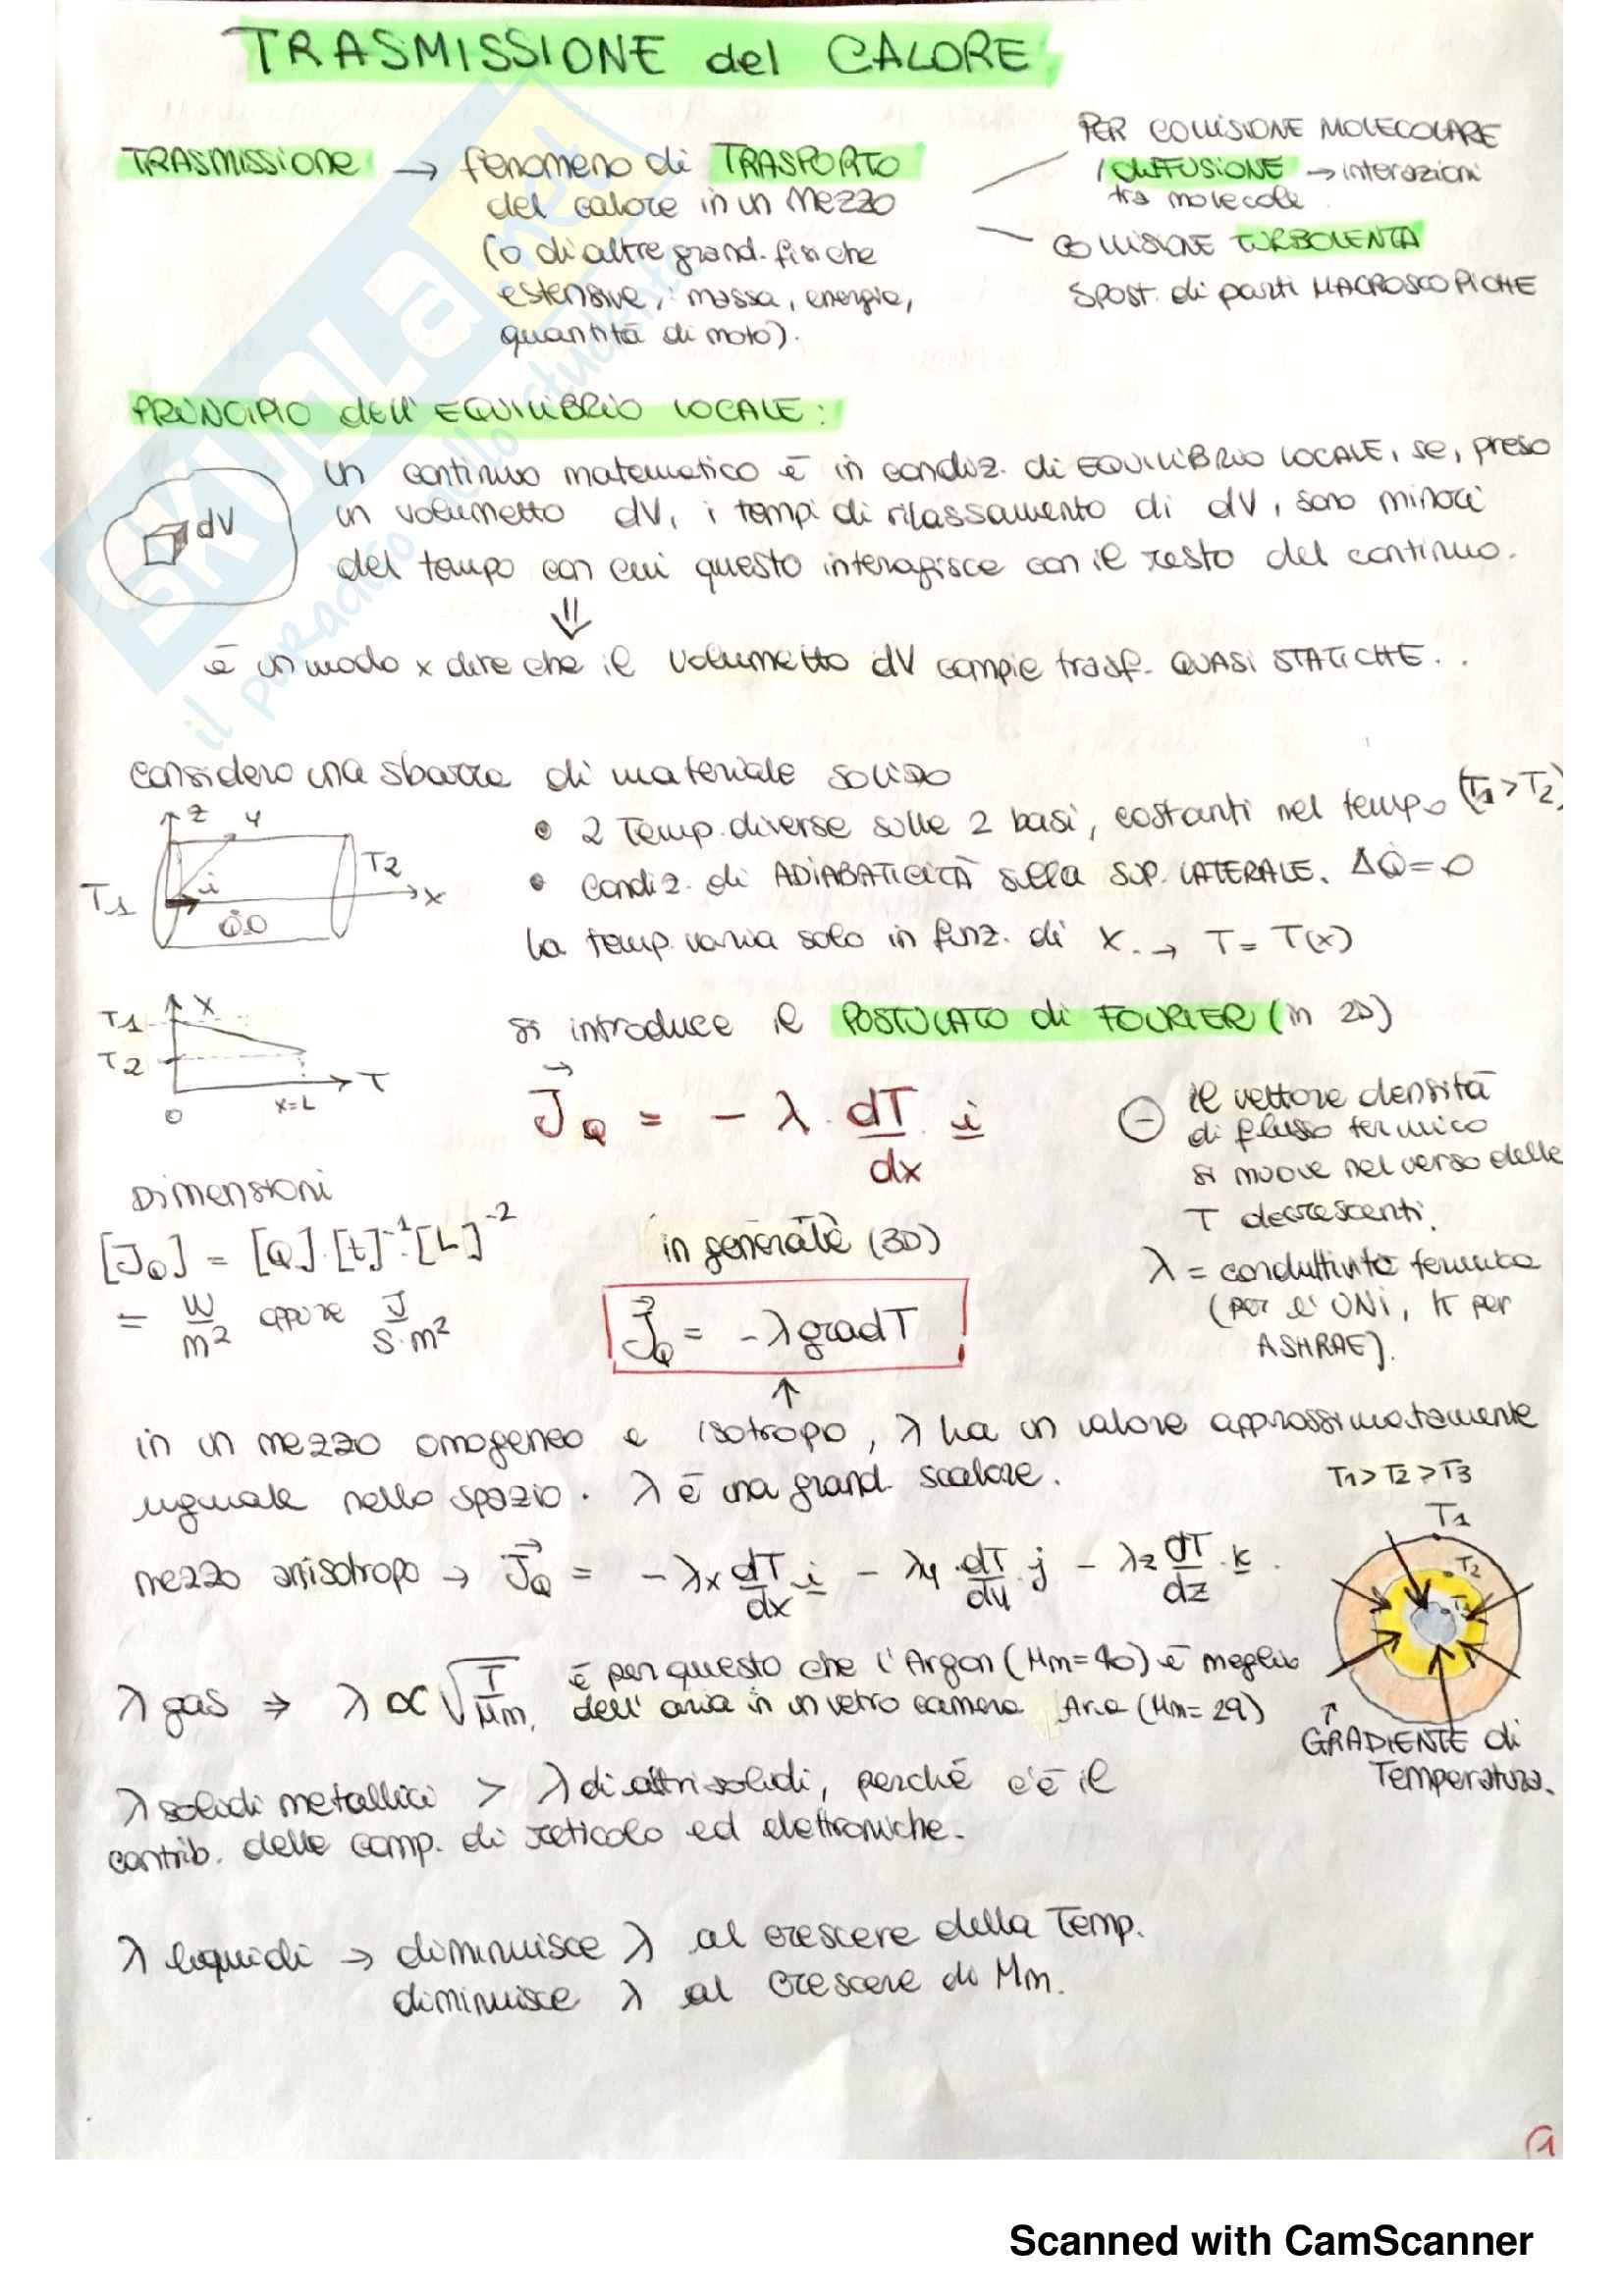 TRASMISSIONE del CALORE
TRASMISSIONE → fenomeno di TRASPORTO
del calore in un mezzo
(o di altre grand. fisiche
estensive, : massa, energia,
quantità di moto).
PER COLLISIONE MOLECOLARE
/ DIFFUSIONE → interazioni
tra molecole
COLLISIONE TURBOLENTA
SPOST. di parti MACROSCOPICHE
PRINCIPIO dell' EQUILIBRIO LOCALE:
dV
un continuo matematico è in condiz. di EQUILIBRIO LOCALE, se, preso
un volumetto dV, i tempi di rilassamento di dV, sono minori
del tempo con cui questo interagisce con il resto del continuo.
⇓
è un modo x dire che il volumetto dV compie trasf. QUASI STATICHE. .
considero una sbarra di materiale solido
z y
T1 i T2 x
• 2 Temp. diverse sulle 2 basi, costanti nel tempo (T1 > T2)
• condiz. di ADIABATICITÀ sulla SUP. LATERALE. ΔQ̇ = 0
la temp. varia solo in funz. di x. → T = T(x)
T1 X
T2
T
0 x=L
si introduce il POSTULATO di FOURIER (in 2D)
J⃗Q = - λ · dT/dx · i
⊖ il vettore densità
di flusso termico
si muove nel verso delle
T decrescenti.
λ = conduttività termica
(per l' UNI, K per
ASHRAE).
Dimensioni
[JQ] = [Q]·[t]⁻¹·[L]⁻²
= W/m² oppure J/s·m²
in generale (3D)
J⃗Q = -λ grad T
↑
in un mezzo omogeneo e isotropo, λ ha un valore approssimatamente
uguale nello spazio. λ è una grand. scalare.
mezzo anisotropo → J⃗Q = -λx dT/dx · i - λy · dT/dy · j - λz dT/dz · k .
T1 > T2 > T3
T1
T2
T3
↑
GRADIENTE di
Temperatura.
λ gas ⇒ λ ∝ √T/Mm. è per questo che l'Argon (Mm=40) è meglio
dell' aria in un vetro camera Aria (Mm= 29)
λ solidi metallici > λ di altri solidi, perché c'è il
contrib. delle comp. di reticolo ed elettroniche.
λ liquidi → diminuisce λ al crescere della Temp.
diminuisce λ al crescere di Mm.
1
SKUOLA.net
il paradiso dello studente
Scanned with CamScanner